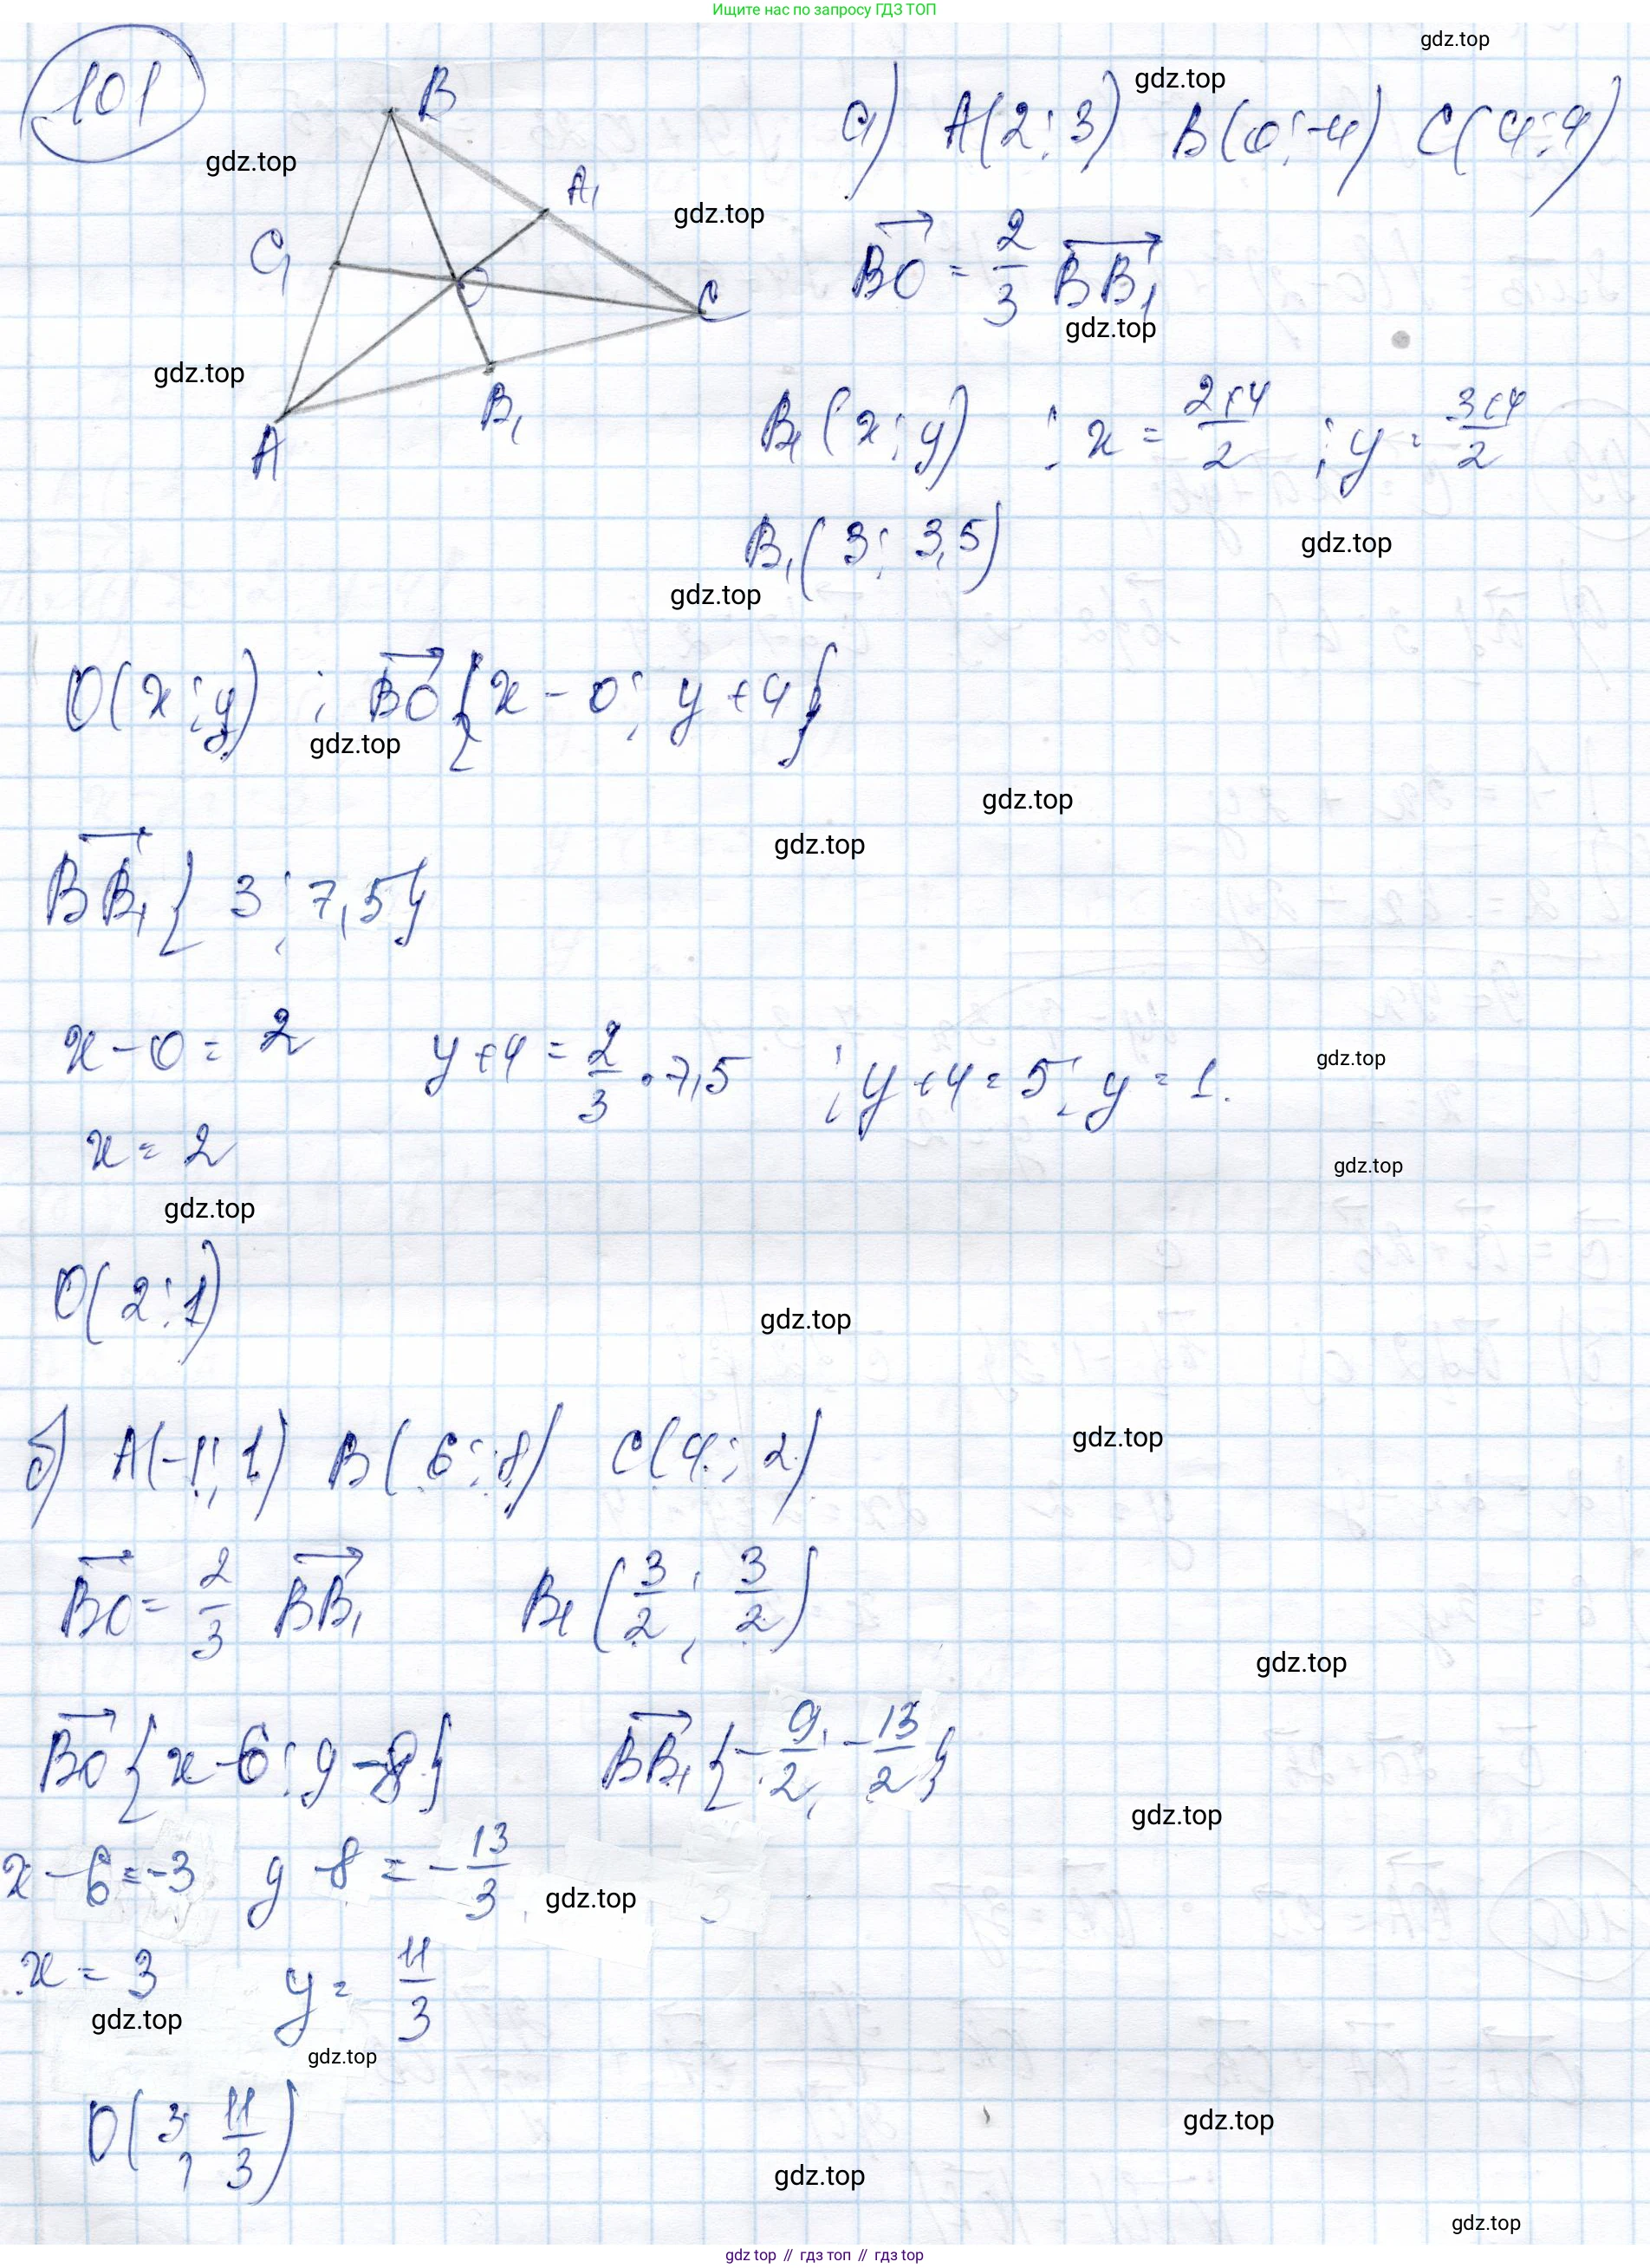 Ищите нас по запросу ГДЗ ТОП
gdz.top
101
B
а) A(2; 3) B(0; -4) C(4; 4)
gdz.top
gdz.top
A₁
gdz.top
C₁
O
C
BO = 2/3 BB₁
gdz.top
gdz.top
B₁
A
B₁(x; y) ; x = (2+4)/2 ; y = (3+4)/2
B₁(3; 3,5)
gdz.top
gdz.top
O(x; y) ; BO {x - 0; y + 4}
gdz.top
gdz.top
gdz.top
BB₁ {3; 7,5}
x - 0 = 2 y + 4 = 2/3 · 7,5 ; y + 4 = 5; y = 1.
gdz.top
x = 2
gdz.top
gdz.top
O(2; 1)
gdz.top
б) A(-1; 1) B(6; 8) C(4; 2)
gdz.top
BO = 2/3 BB₁ B₁(3/2; 3/2)
gdz.top
BO {x - 6; y - 8} BB₁ {-9/2; -13/2}
gdz.top
x - 6 = -3 y - 8 = -13/3
gdz.top
x = 3 y = 11/3
gdz.top
gdz.top
O(3; 11/3)
gdz.top
gdz.top
gdz.top
gdz top // гдз топ // гдз top